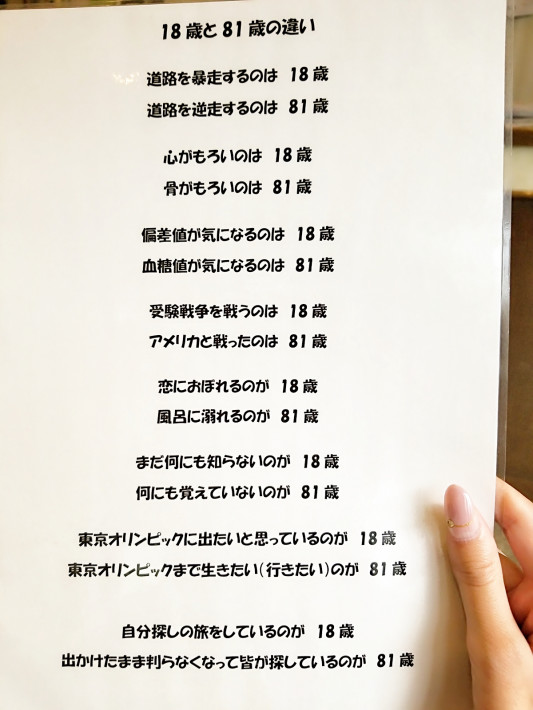 18歳と81歳の違い
道路を暴走するのは 18歳
道路を逆走するのは 81歳
心がもろいのは 18歳
骨がもろいのは 81歳
偏差値が気になるのは 18歳
血糖値が気になるのは 81歳
受験戦争を戦うのは 18歳
アメリカと戦ったのは 81歳
恋におぼれるのが 18歳
風呂に溺れるのが 81歳
まだ何にも知らないのが 18歳
何にも覚えていないのが 81歳
東京オリンピックに出たいと思っているのが 18歳
東京オリンピックまで生きたい(行きたい)のが 81歳
自分探しの旅をしているのが 18歳
出かけたまま判らなくなって皆が探しているのが 81歳